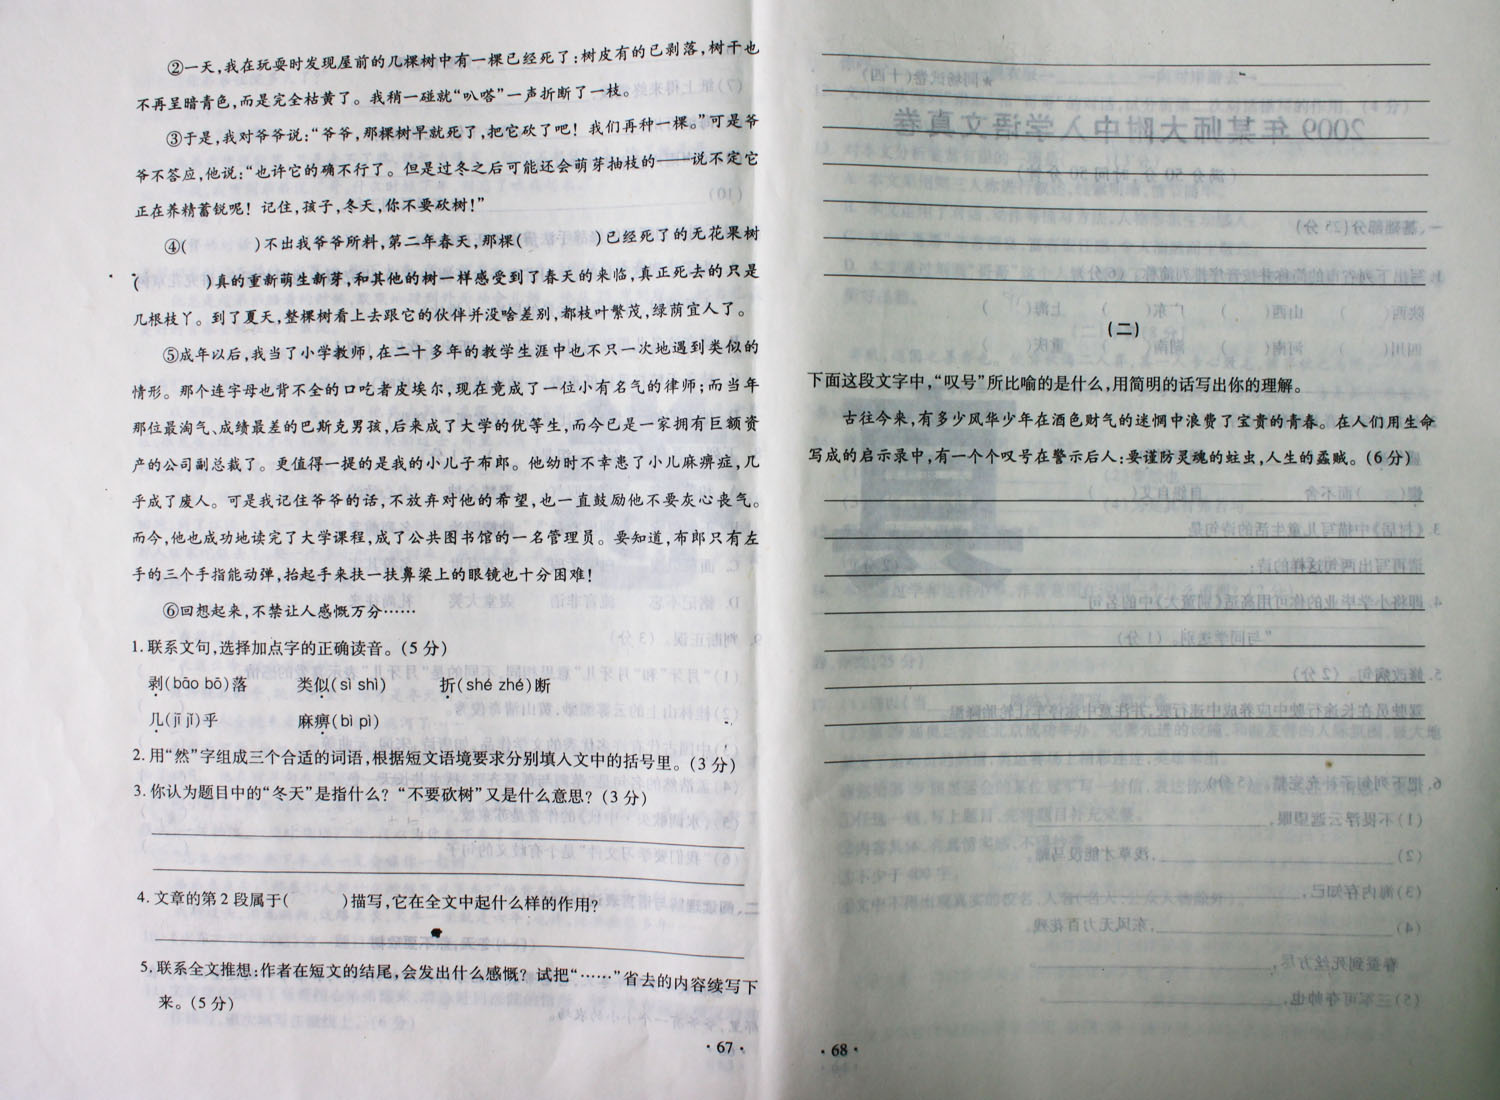 ②一天,我在玩耍时发现屋前的几棵树中有一棵已经死了:树皮有的已剥落,树干也
不再呈暗青色,而是完全枯黄了。我稍一碰就“叭嗒”一声折断了一枝。
③于是,我对爷爷说:“爷爷,那棵树早就死了,把它砍了吧！我们再种一棵。”可是爷
爷不答应,他说:“也许它的确不行了。但是过冬之后可能还会萌芽抽枝的——说不定它
正在养精蓄锐呢！记住,孩子,冬天,你不要砍树!”
④(　　　)不出我爷爷所料,第二年春天,那棵(　　　)已经死了的无花果树
(　　　)真的重新萌生新芽,和其他的树一样感受到了春天的来临,真正死去的只是
几根枝丫。到了夏天,整棵树看上去跟它的伙伴并没啥差别,都枝叶繁茂,绿荫宜人了。
⑤成年以后,我当了小学教师,在二十多年的教学生涯中也不只一次地遇到类似的
情形。那个连字母也背不全的口吃者皮埃尔,现在竟成了一位小有名气的律师;而当年
那位最淘气、成绩最差的巴斯克男孩,后来成了大学的优等生,而今已是一家拥有巨额资
产的公司副总裁了。更值得一提的是我的小儿子布郎。他幼时不幸患了小儿麻痹症,几
乎成了废人。可是我记住爷爷的话,不放弃对他的希望,也一直鼓励他不要灰心丧气。
而今,他也成功地读完了大学课程,成了公共图书馆的一名管理员。要知道,布郎只有左
手的三个手指能动弹,抬起手来扶一扶鼻梁上的眼镜也十分困难!
⑥回想起来,不禁让人感慨万分……
1. 联系文句,选择加点字的正确读音。(5 分)
剥(bāo bō)落　类似(sì shì)　折(shé zhé)断
几(jī jǐ)乎　麻痹(bì pì)
2. 用“然”字组成三个合适的词语,根据短文语境要求分别填人文中的括号里。(3 分)
3. 你认为题目中的“冬天”是指什么？“不要砍树”又是什么意思？(3 分)
4. 文章的第 2 段属于(　　　)描写,它在全文中起什么样的作用?
5. 联系全文推想:作者在短文的结尾,会发出什么感慨？试把“……”省去的内容续写下
来。(5 分)
· 67 ·
(二)
下面这段文字中,“叹号”所比喻的是什么,用简明的话写出你的理解。
古往今来,有多少风华少年在酒色财气的迷惘中浪费了宝贵的青春。在人们用生命
写成的启示录中,有一个个叹号在警示后人:要谨防灵魂的蛀虫,人生的蟊贼。(6 分)
· 68 ·